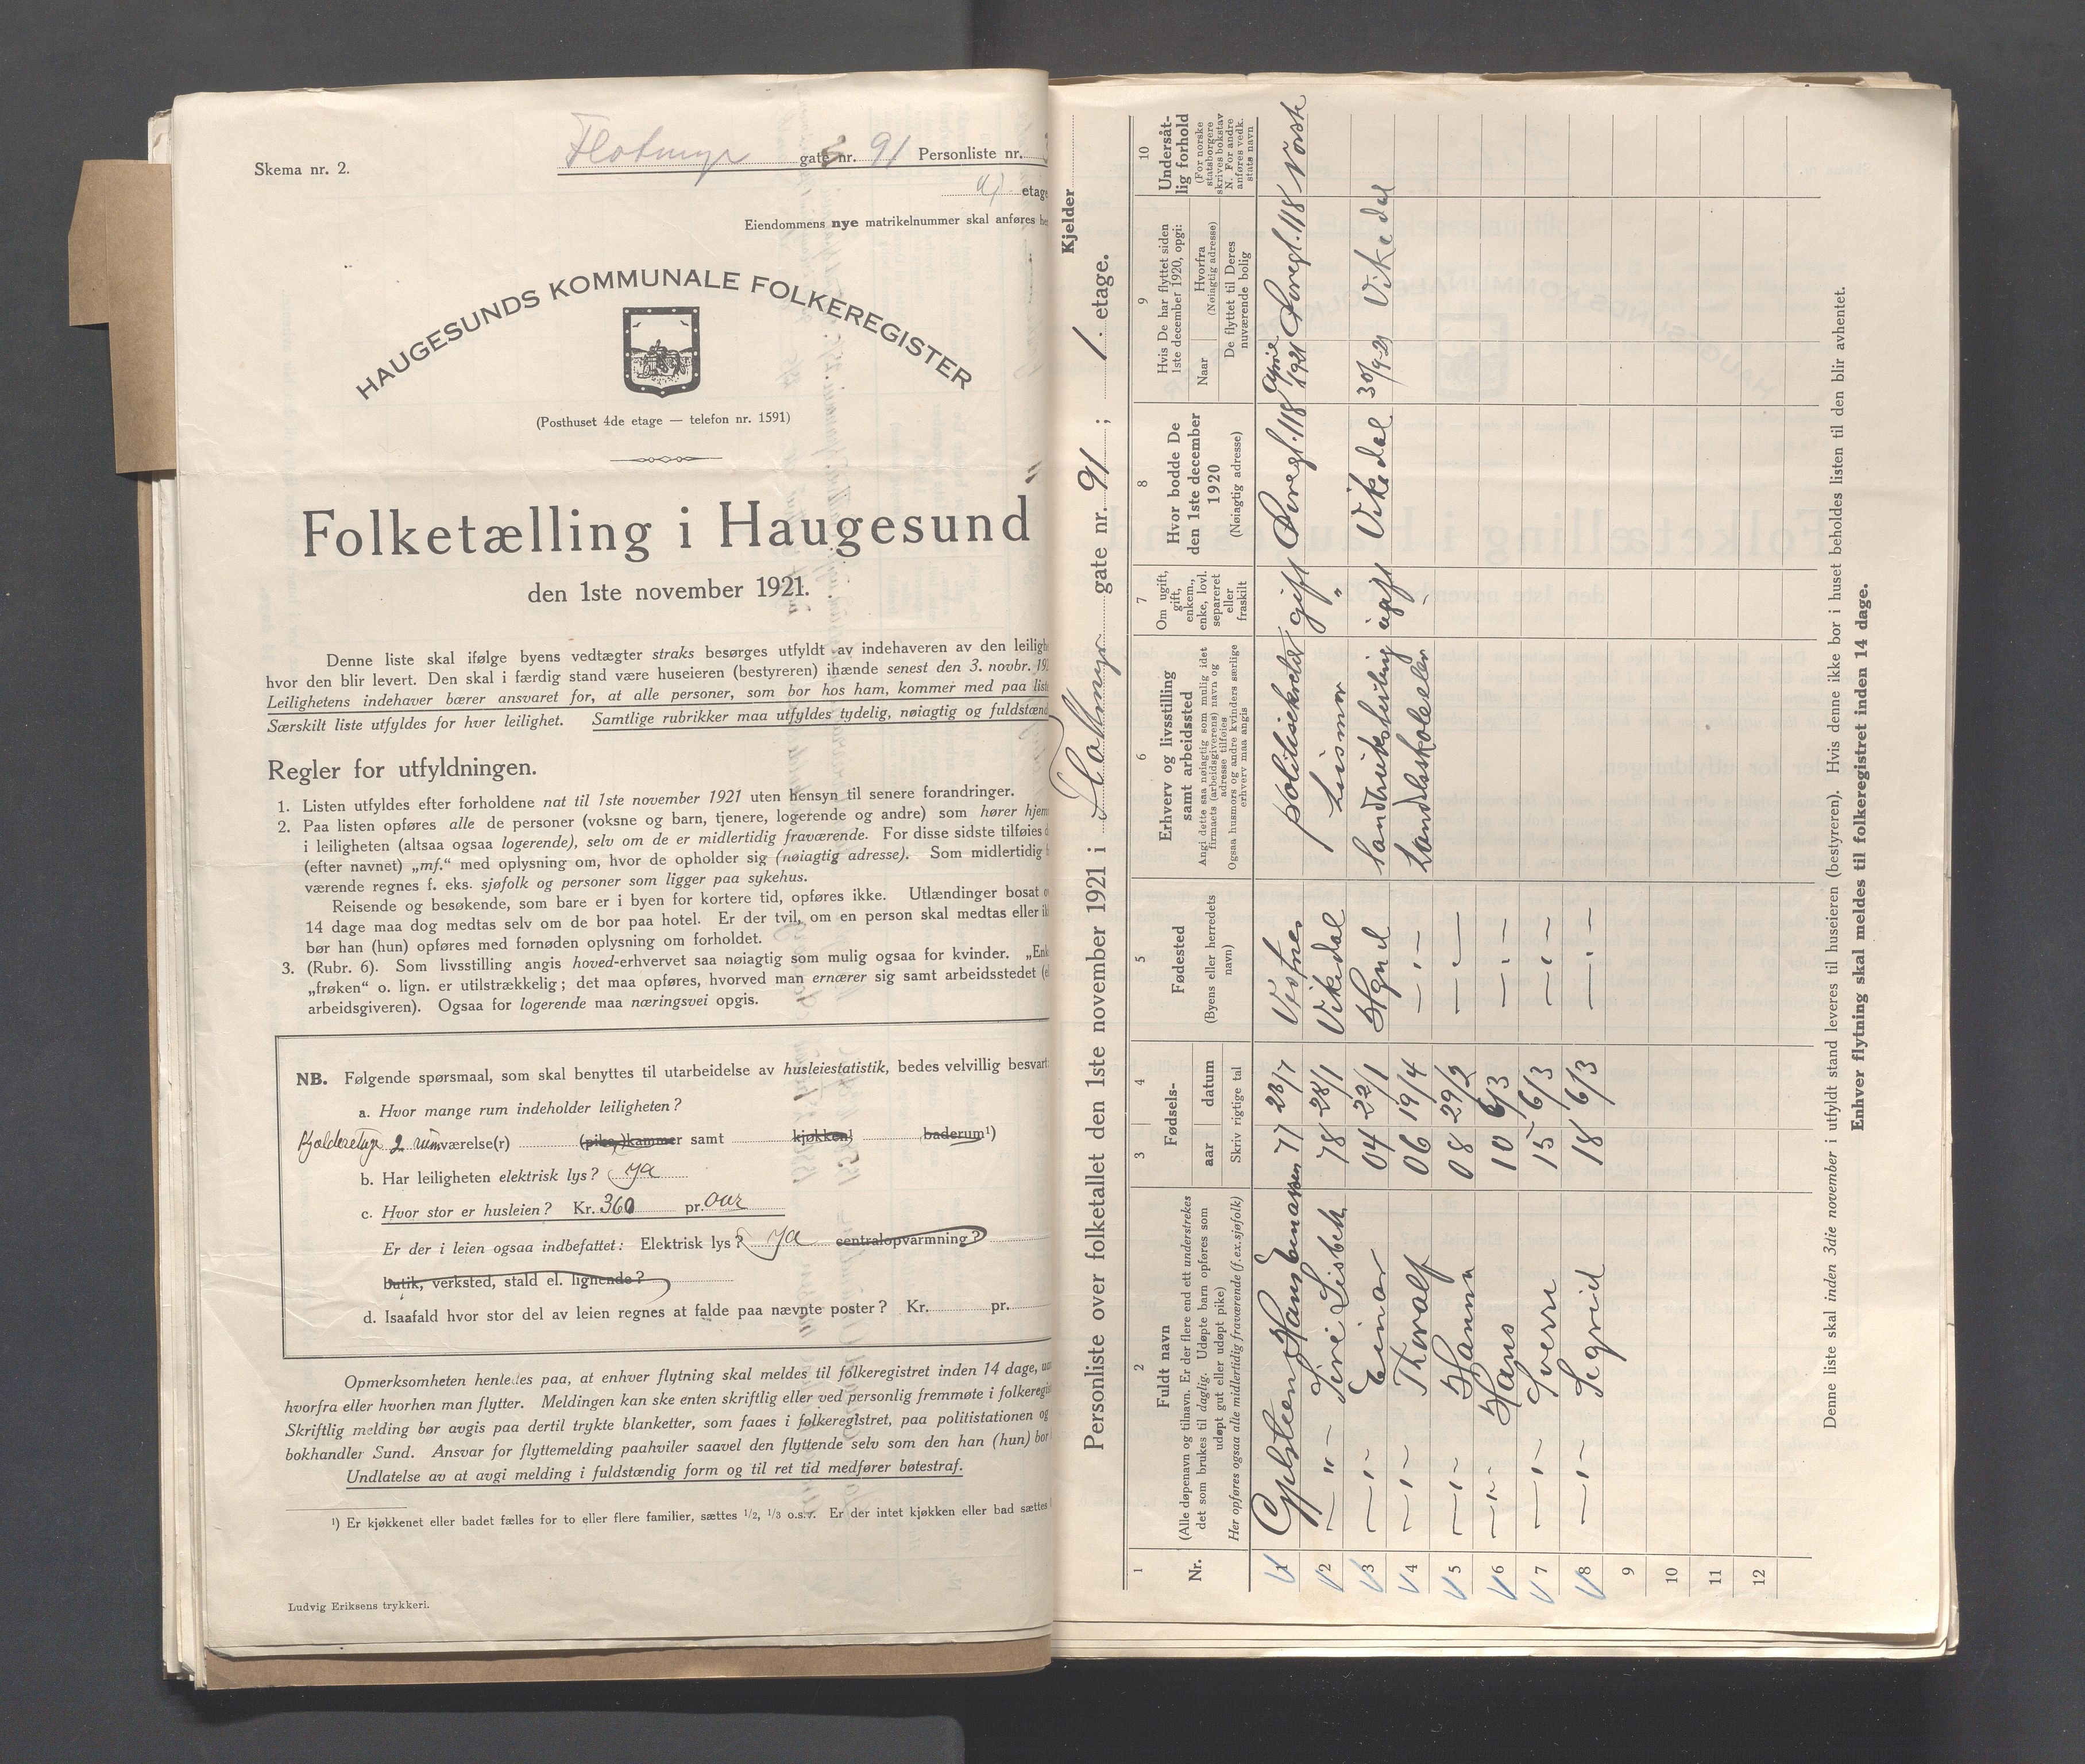 Skema nr. 2.
Flotmyr gate nr. 91 Personliste nr. 3
etage
Eiendommens nye matrikelnummer skal anføres her
HAUGESUNDS KOMMUNALE FOLKEREGISTER
(Posthuset 4de etage — telefon nr. 1591)
Folketælling i Haugesund
den 1ste november 1921.
Denne liste skal ifølge byens vedtægter straks besørges utfyldt av indehaveren av den leiligh
hvor den blir levert. Den skal i færdig stand være huseieren (bestyreren) ihænde senest den 3. novbr. 192
Leilighetens indehaver bærer ansvaret for, at alle personer, som bor hos ham, kommer med paa liste
Særskilt liste utfyldes for hver leilighet. Samtlige rubrikker maa utfyldes tydelig, nøiagtig og fuldstænd
Regler for utfyldningen.
1. Listen utfyldes efter forholdene nat til 1ste november 1921 uten hensyn til senere forandringer.
2. Paa listen opføres alle de personer (voksne og barn, tjenere, logerende og andre) som hører hjem
i leiligheten (altsaa ogsaa logerende), selv om de er midlertidig fraværende. For disse sidste tilføies d
(efter navnet) „mf.“ med oplysning om, hvor de opholder sig (nøiagtig adresse). Som midlertidig f
værende regnes f. eks. sjøfolk og personer som ligger paa sykehus.
Reisende og besøkende, som bare er i byen for kortere tid, opføres ikke. Utlændinger bosat o
14 dage maa dog medtas selv om de bor paa hotel. Er der tvil, om en person skal medtas eller ik
bør han (hun) opføres med fornøden oplysning om forholdet.
3. (Rubr. 6). Som livsstilling angis hoved-erhvervet saa nøiagtig som mulig ogsaa for kvinder. „Enk
„frøken“ o. lign. er utilstrækkelig; det maa opføres, hvorved man ernærer sig samt arbeidsstedet (e
arbeidsgiveren). Ogsaa for logerende maa næringsvei opgis.
NB. Følgende spørsmaal, som skal benyttes til utarbeidelse av husleiestatistik, bedes velvillig besvart:
a. Hvor mange rum indeholder leiligheten?
Kjelderetage 2 rum værelse(r) (pike-)kammer samt kjøkken baderum¹)
b. Har leiligheten elektrisk lys? ja
c. Hvor stor er husleien? Kr. 360 pr. aar
Er der i leien ogsaa indbefattet: Elektrisk lys? ja centralopvarmning?
butik, verksted, stald el. lignende?
d. Isaafald hvor stor del av leien regnes at falde paa nævnte poster? Kr. pr.
Opmerksomheten henledes paa, at enhver flytning skal meldes til folkeregistret inden 14 dage,
hvorfra eller hvorhen man flytter. Meldingen kan ske enten skriftlig eller ved personlig fremmøte i folkeregis
Skriftlig melding bør avgis paa dertil trykte blanketter, som faaes i folkeregistret, paa politistationen og
bokhandler Sund. Ansvar for flyttemelding paahviler saavel den flyttende selv som den han (hun) bor
Undlatelse av at avgi melding i fuldstændig form og til ret tid medfører bøtestraf.
¹) Er kjøkkenet eller badet fælles for to eller flere familier, sættes 1/2, 1/3 o.s.v. Er der intet kjøkken eller bad sættes
Ludvig Eriksens trykkeri.
Kjelder
Personliste over folketallet den 1ste november 1921 i Flotmyr gate nr. 91; 1. etage.
1 2 3 4 5 6 7 8 9 10
Nr.
Fuldt navn
(Alle døpenavn og tilnavn. Er der flere end ett understrekes
det som brukes til daglig. Udøpte barn opføres som
udøpt gut eller udøpt pike)
Her opføres ogsaa alle midlertidig fraværende (f. ex. sjøfolk)
Fødsels-
aar datum
Skriv rigtige tal
Fødested
(Byens eller herredets
navn)
Erhverv og livsstilling
samt arbeidssted
Angi dette saa nøiagtig som mulig idet
firmaets (arbeidsgiverens) navn og
adresse tilføies
Ogsaa husmors og andre kvinders særlige
erhverv maa angis
Om ugift,
gift,
enkem.,
enke, lovl.
separeret
eller
fraskilt
Hvor bodde De
den 1ste december
1920
(Nøiagtig adresse)
Hvis De har flyttet siden
1ste december 1920, opgi:
Naar
Hvorfra
(Nøiagtig adresse)
De flyttet til Deres
nuværende bolig
Undersåt-
lig forhold
(For norske
statsborgere
skrives bokstav
N. For andre
anføres vedk.
stats navn
1 Hans 77 28/7 gift 118 April 1921 118 Norsk
2 — " — Sine Lisbeth 78 28/1 Vikedal Husmor "
3 — " — Einar 04 22/1 ugift Vikedal 30/9-21 Vikedal
4 — " — Thoralf 06 19/4 — " — Handelsskoleelev —
5 — " — Hanna 08 29/2 — " —
6 — " — Hans 10 6/3 — " —
7 — " — Sverre 15 6/3 — " —
8 — " — Sigrid 18 6/3 — " —
9
10
11
12
Denne liste skal inden 3die november i utfyldt stand leveres til huseieren (bestyreren). Hvis denne ikke bor i huset beholdes listen til den blir avhentet.
Enhver flytning skal meldes til folkeregistret inden 14 dage.